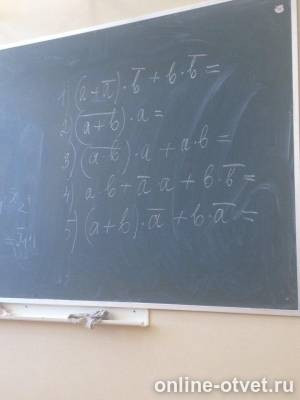 1) (a+a̅)·b̅ + b·b̅ =
2) (a̅+̅b̅)·a =
3) (a̅·̅b̅)·a + a·b =
4) a·b + a̅·a + b·b̅ =
5) (a+b)·a̅ + b·a̅ =
online-otvet.ru